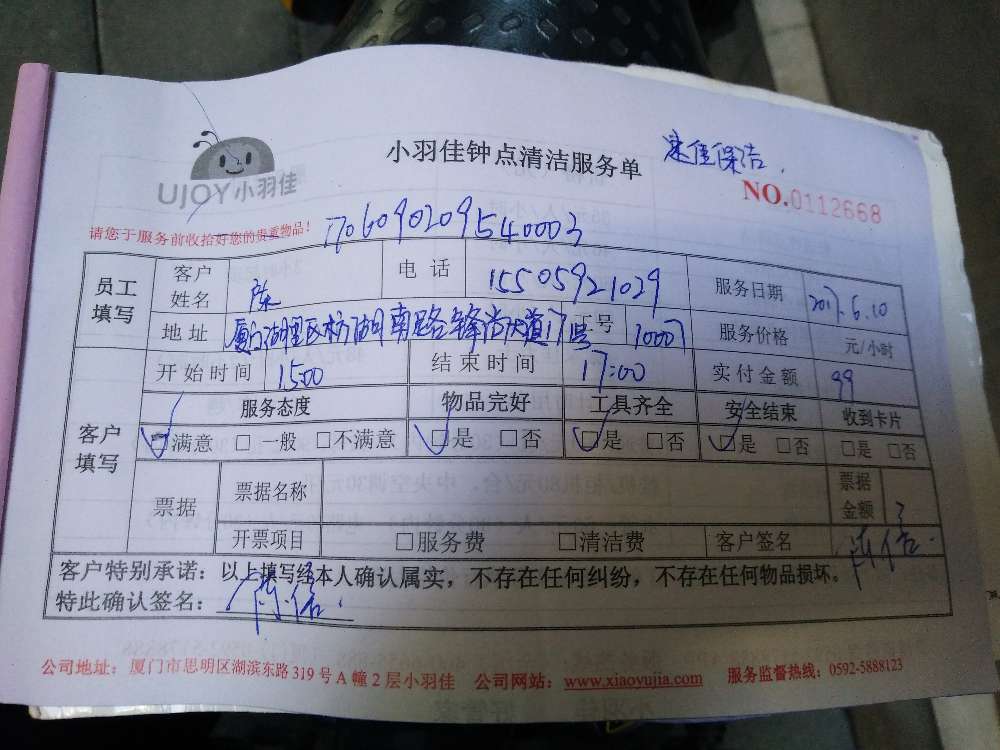 UJOY小羽佳
小羽佳钟点清洁服务单
速佳保洁.
NO.0112668
请您于服务前收拾好您的贵重物品!
17060902095 40003
员工填写 客户姓名 陈 电话 15505921029 服务日期 2017.6.10
地址 厦门湖里区枋湖南路 17号 工号 10007 服务价格 元/小时
开始时间 1500 结束时间 17:00 实付金额 99
客户填写 服务态度 物品完好 工具齐全 安全结束 收到卡片
□满意 □一般 □不满意 □是 □否 □是 □否 □是 □否 □是 □否
票据 票据名称 票据金额
开票项目 □服务费 □清洁费 客户签名
客户特别承诺：以上填写经本人确认属实，不存在任何纠纷，不存在任何物品损坏。
特此确认签名：
公司地址：厦门市思明区湖滨东路319号A幢2层小羽佳 公司网站：www.xiaoyujia.com 服务监督热线：0592-5888123